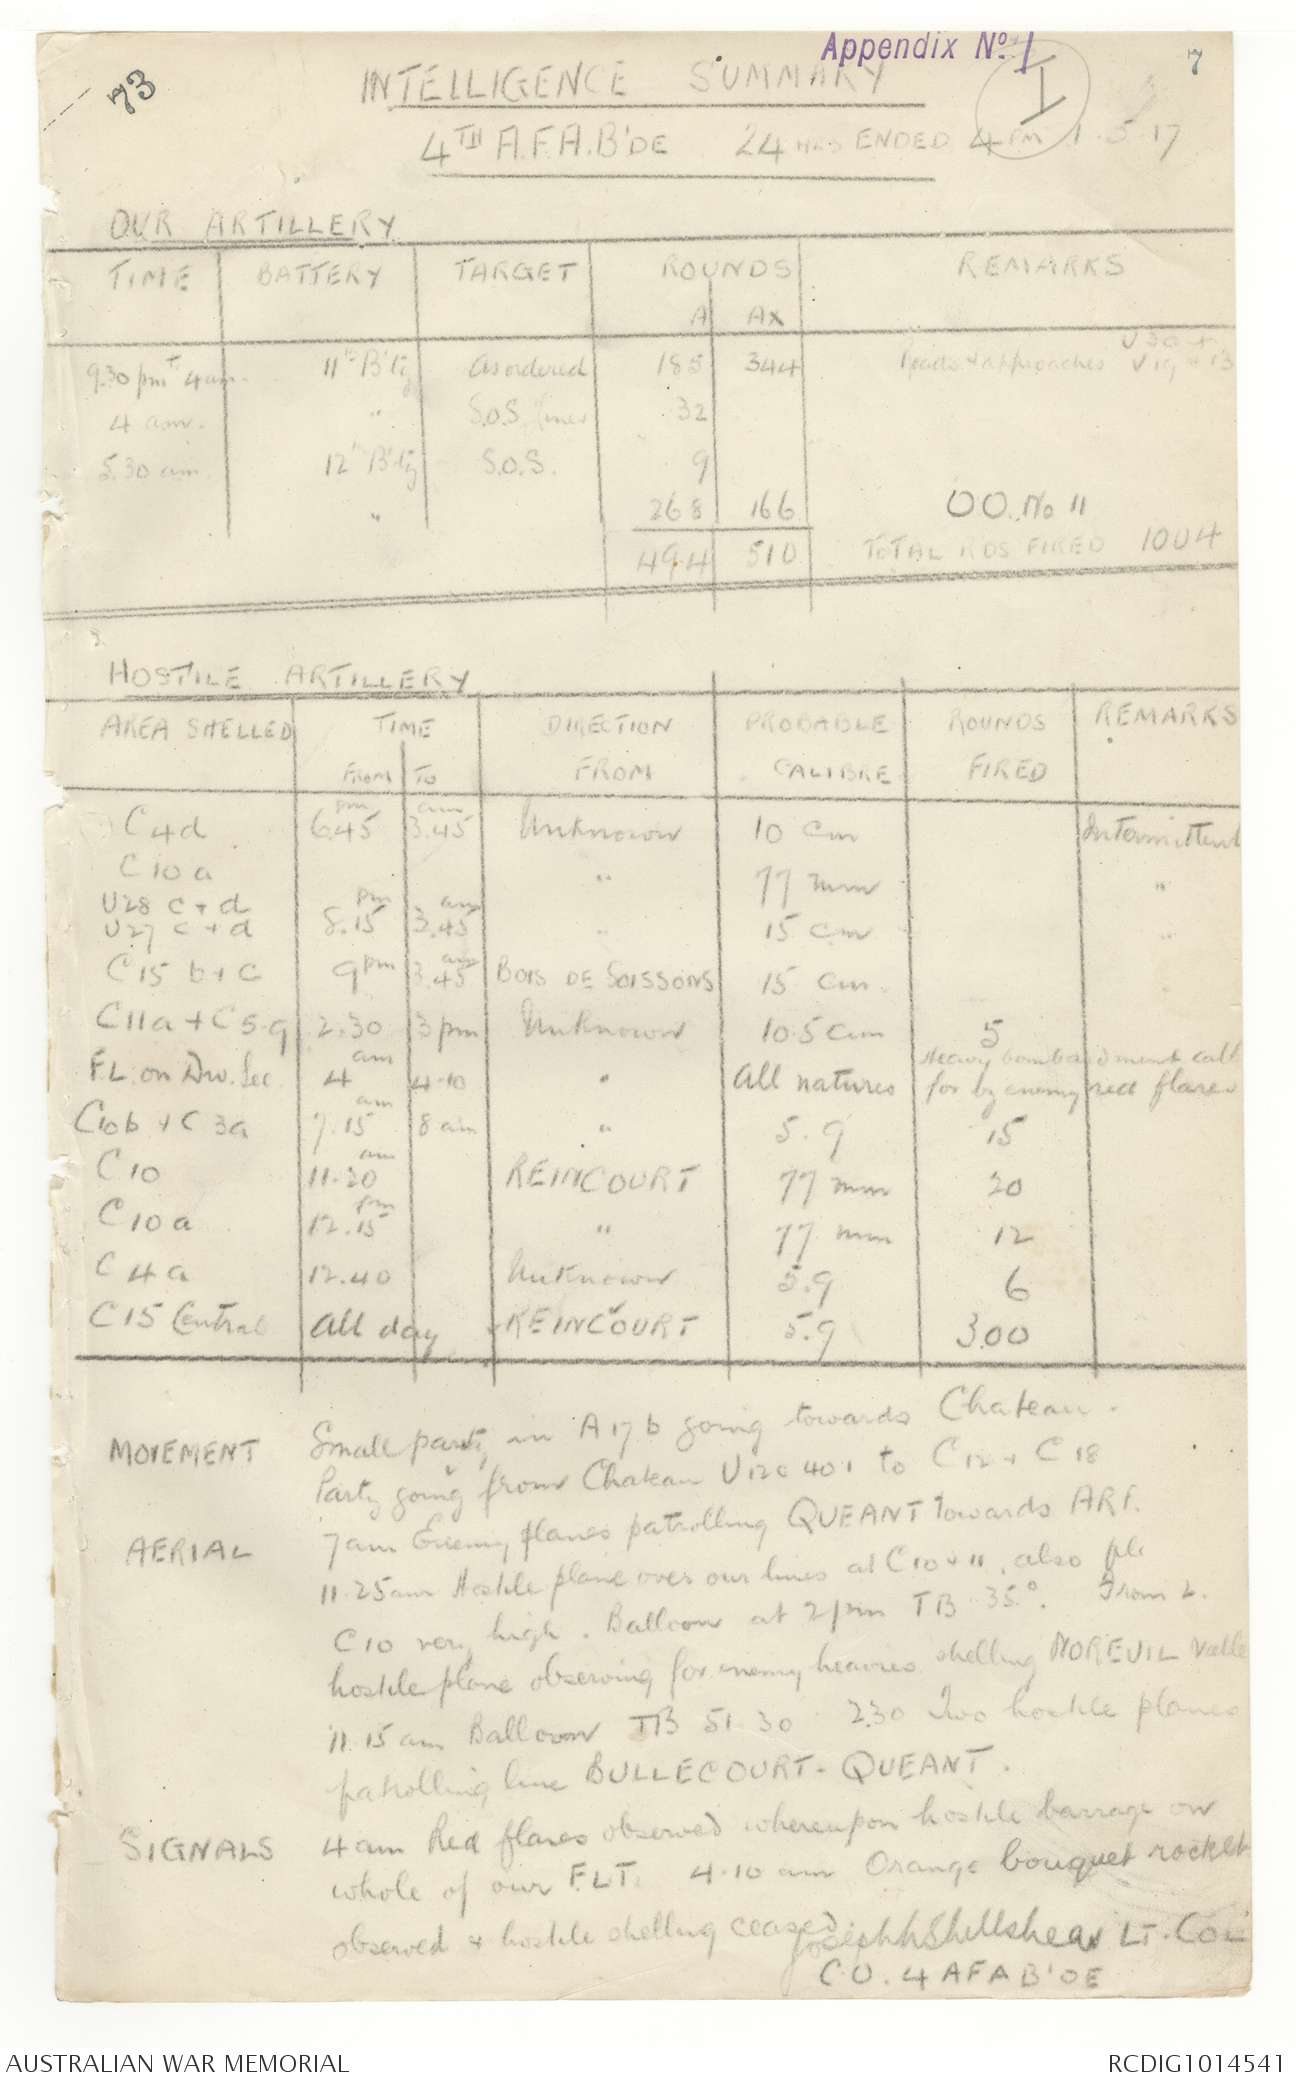 73
Appendix No. 1
7
I
INTELLIGENCE SUMMARY
4TH A.F.A. B'DE 24 HRS ENDED 4 PM 1.5.17
OUR ARTILLERY
TIME BATTERY TARGET ROUNDS REMARKS
A AX
9.30 pm to 4 am. 11th B'ty As ordered 185 344 Roads & approaches
4 am. " S.O.S. lines 32
5.30 am. 12th B'ty S.O.S. 9
" 268 166 OO. No 11
494 510 TOTAL RDS FIRED 1004
HOSTILE ARTILLERY
AREA SHELLED TIME DIRECTION PROBABLE ROUNDS REMARKS
FROM TO FROM CALIBRE FIRED
C4d 6.45 pm 3.45 am Unknown 10 cm Intermittent
C10a " 77 mm "
U28 c + d
U27 c + d 8.15 pm 3.45 am " 15 cm "
C15 b + c 9 pm 3.45 am BOIS DE SOISSONS 15 cm.
C11a + C5.9 2.30 3 pm Unknown 10.5 cm 5
F.L. on Div. Sec. 4 am 4.10 " All natures Heavy bombardment call
for by enemy red flares
C10b + C3a 7.15 am 8 am " 5.9 15
C10 11.20 am REINCOURT 77 mm 20
C10a 12.15 pm " 77 mm 12
C4a 12.40 Unknown 5.9 6
C15 Central All day REINCOURT 5.9 300
MOVEMENT Small party in A17b going towards Chateau.
Party going from Chateau U12c 40.1 to C12 + C18
AERIAL 7am Enemy planes patrolling QUEANT towards
11.25am Hostile plane over our lines at C10 + 11, also
C10 very high. Balloon at 2pm TB 35°. From 2.
hostile plane observing for enemy heavies shelling NOREUIL Valle
11.15 am Balloon TB 51.30 2.30 Two hostile planes
patrolling line BULLECOURT - QUEANT.
SIGNALS 4am Red flares observed whereupon hostile barrage on
whole of our F.L.T. 4.10 am Orange bouquet rocket
observed & hostile shelling ceased
Joseph Shellshear LT. COL
C.O. 4 AFA B'DE
AUSTRALIAN WAR MEMORIAL RCDIG1014541